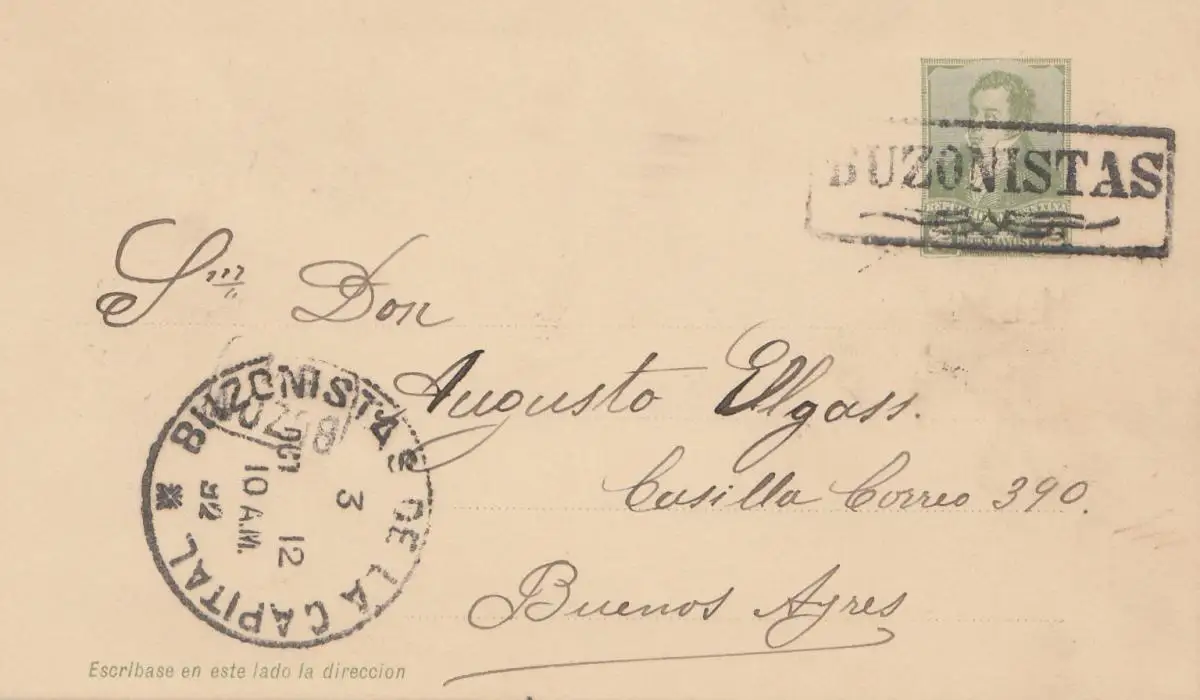 BUZONISTAS
REPUBLICA ARGENTINA
Sr. Don
Augusto Elgass.
Casilla Correo 390.
Buenos Ayres
BUZONISTAS DE LA CAPITAL
OCT
3
12
10 A.M.
92
Escribase en este lado la direccion